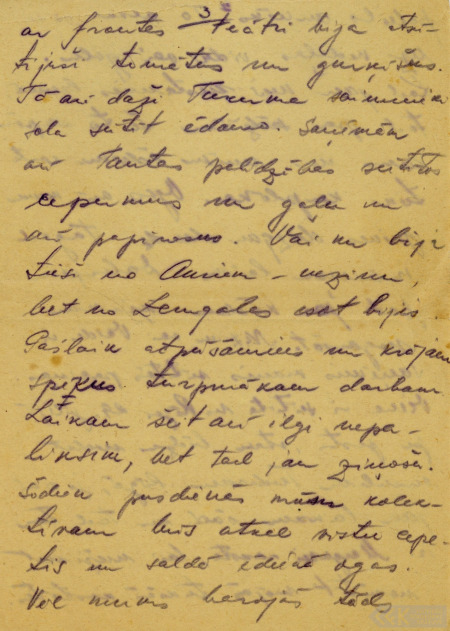 3
ar frontes teātri bija atsū-
tijuši tomātus un gurķišus.
Tāari daži Tukuma saimnieki
sola sūtīt ēdamo. Saņēmām
arī Tautas palīdzības sūtītos
cepumus un gaļu un
arī papirosus. Vai nu bija
tieši no Annien - nezinu,
bet no Zemgales esot bijis
Pašlaik atpūšamies un krājam
spēkus turpmākam darbam
Laikam šeit arī ilgi nepa-
liksim, bet tad jau ziņošu.
Šodien pusdienās mūsu kolek-
tīvam būs atkal vistu cepe-
tis un saldā ēdienā ogas.
Vēl mums barojās tāds